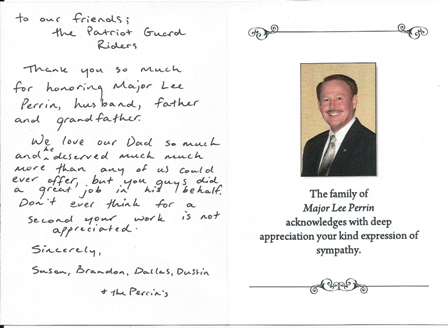 to our friends;
the Patriot Guard
Riders
Thank you so much
for honoring Major Lee
Perrin, husband, father
and grandfather.
We love our Dad so much
and he deserved much much
more than any of us could
ever offer, but you guys did
a great job in his behalf.
Don't ever think for a
second your work is not
appreciated.
Sincerely,
Susan, Brandon, Dallas, Dustin
& the Perrin's
The family of
Major Lee Perrin
acknowledges with deep
appreciation your kind expression of
sympathy.